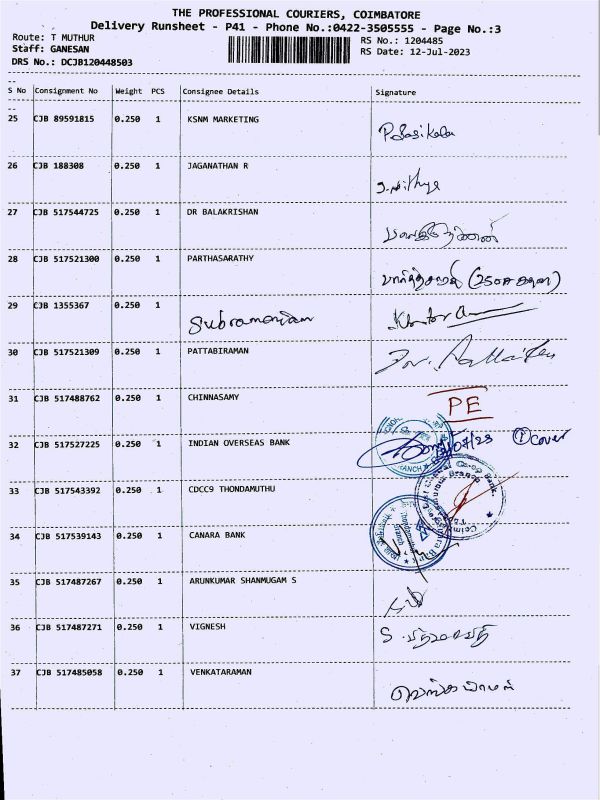 THE PROFESSIONAL COURIERS, COIMBATORE
Delivery Runsheet - P41 - Phone No.:0422-3505555 - Page No.:3
Route: T MUTHUR RS No.: 1204485
Staff: GANESAN RS Date: 12-Jul-2023
DRS No.: DCJB120448503
S No Consignment No Weight PCS Consignee Details Signature
25 CJB 89591815 0.250 1 KSNM MARKETING P.Sasikala
26 CJB 188308 0.250 1 JAGANATHAN R
27 CJB 517544725 0.250 1 DR BALAKRISHAN
28 CJB 517521300 0.250 1 PARTHASARATHY
29 CJB 1355367 0.250 1 Subramaniam
30 CJB 517521309 0.250 1 PATTABIRAMAN
31 CJB 517488762 0.250 1 CHINNASAMY PE
32 CJB 517527225 0.250 1 INDIAN OVERSEAS BANK Cover
33 CJB 517543392 0.250 1 CDCC9 THONDAMUTHU
34 CJB 517539143 0.250 1 CANARA BANK
35 CJB 517487267 0.250 1 ARUNKUMAR SHANMUGAM S
36 CJB 517487271 0.250 1 VIGNESH
37 CJB 517485058 0.250 1 VENKATARAMAN